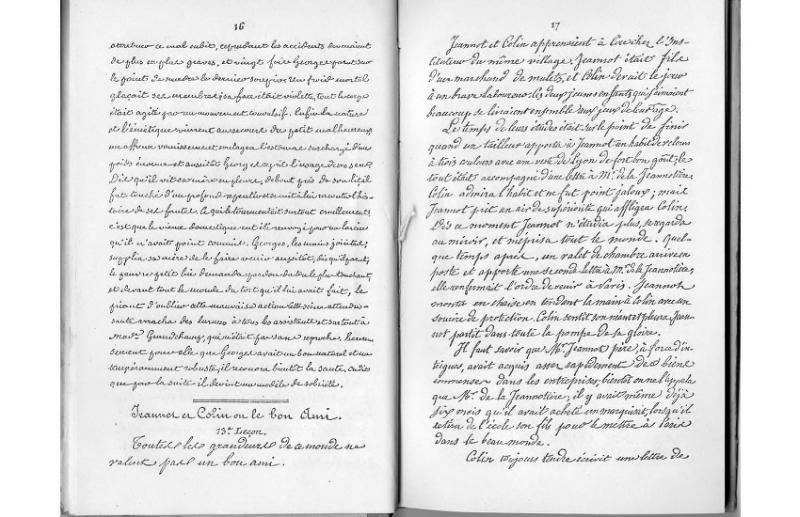 16
attribuer ce mal subit, cependant les accidents devenaient
de plus en plus graves, et vingt fois Georges parut sur
le point de rendre le dernier soupir. Un froid mortel
glaçait ses membres, sa face était violette, tout le corps
était agité par un mouvement convulsif. Enfin la nature
et l'émétique vinrent au secours du petit malheureux
un affreux vomissement soulagea l'estomac surchargé d'un
poids énorme et aussitôt Georges reprit l'usage de ses sens
Dès qu'il vit sa mère en pleurs, debout près de son lit, il
fut touché d'un profond repentir et suite lui raconta l'his-
toire de ses fautes. Ce qui le tourmentait surtout cruellement,
c'est que le vieux domestique eut été renvoyé pour un larcin
qu'il n'avait point commis. Georges, les mains jointes,
supplia sa mère de le faire venir aussitôt, dès qu'il parut,
le pauvre petit lui demanda pardon du ton le plus touchant,
et devant tout le monde, du tort qu'il lui avait fait, le
priant d'oublier cette mauvaise action. Cette scène attendris-
sante arracha des larmes à tous les assistants et surtout à
mad.e Grandchamp, qui n'était pas sans reproche. Heureu-
sement pour elle que Georges avait un bon naturel et un
tempérament robuste, il recouvra bientôt la santé, on dit
que par la suite il devint un modèle de sobriété.
Jeannot et Colin ou le bon Ami.
13e Leçon.
Toutes les grandeurs de ce monde ne
valent pas un bon ami.
17
Jeannot et Colin apprenaient à lire chez l'Ins-
tituteur du même village. Jeannot était fils
d'un marchand de mulets, et Colin devait le jour
à un brave Laboureur. Les deux jeunes enfants qui s'aimaient
beaucoup se livraient ensemble aux jeux de leur âge.
Le temps de leurs études était sur le point de finir
quand un tailleur apporta à Jeannot un habit de velours
à trois couleurs avec une veste de Lyon de fort bon goût; le
tout était accompagné d'une lettre à Mr. de la Jeannotière.
Colin admira l'habit et ne fut point jaloux; mais
Jeannot prit un air de supériorité qui affligea Colin.
Dès ce moment Jeannot n'étudia plus, se regarda
au miroir, et méprisa tout le monde. Quel-
que temps après, un valet de chambre arrive en
poste et apporte une seconde lettre à Mr. de la Jeannotière,
elle renfermait l'ordre de venir à Paris. Jeannot
monta en chaise en tendant la main à Colin avec un
sourire de protection. Colin sentit son néant et pleura. Jean-
not partit dans toute la pompe de sa gloire.
Il faut savoir que Mr. Jeannot père, à force d'in-
trigues, avait acquis assez rapidement des biens
immenses dans les entreprises; bientôt on ne l'appela
que Mr. de la Jeannotière; il y avait même déjà
six mois qu'il avait acheté un marquisat, lorsqu'il
retira de l'école son fils pour le mettre à Paris
dans le beau monde.
Colin toujours tendre écrivit une lettre de